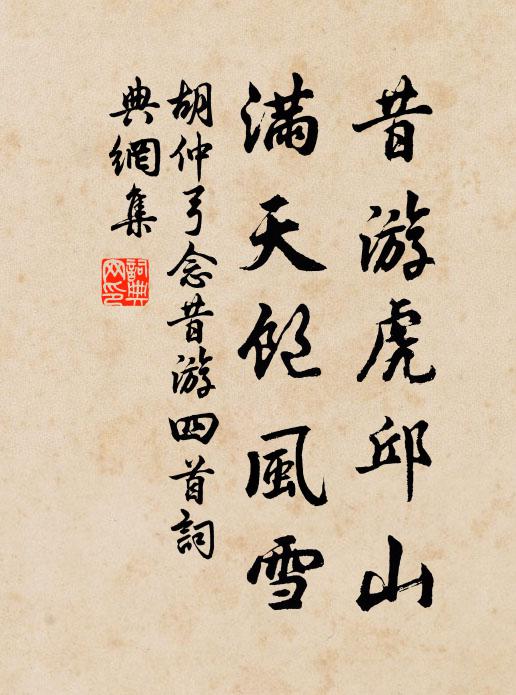 昔游虎邱山
滿天飽風雪
胡仲弓念昔游四首詞
典網集
詞典
网印